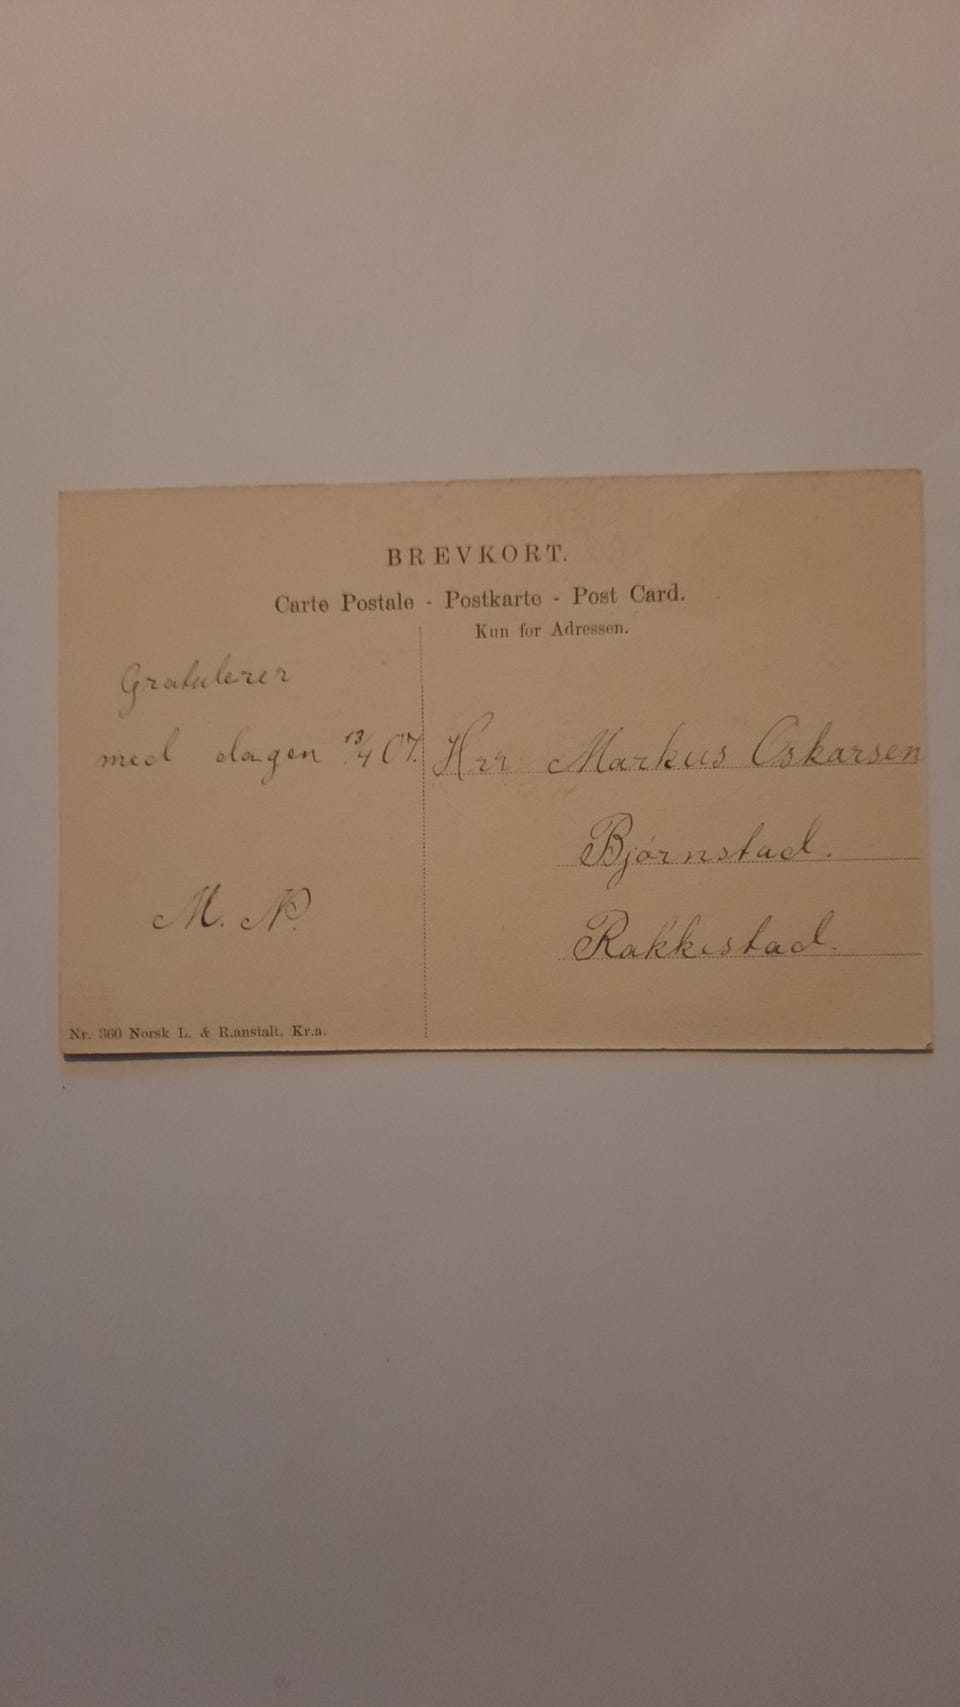 BREVKORT.
Carte Postale - Postkarte - Post Card.
Kun for Adressen.
Gratulerer
med dagen 13/4 07.
M. N.
Herr Markus Oskarsen
Bjørnstad.
Rakkestad.
Nr. 360 Norsk L. & R.anstalt, Kr.a.